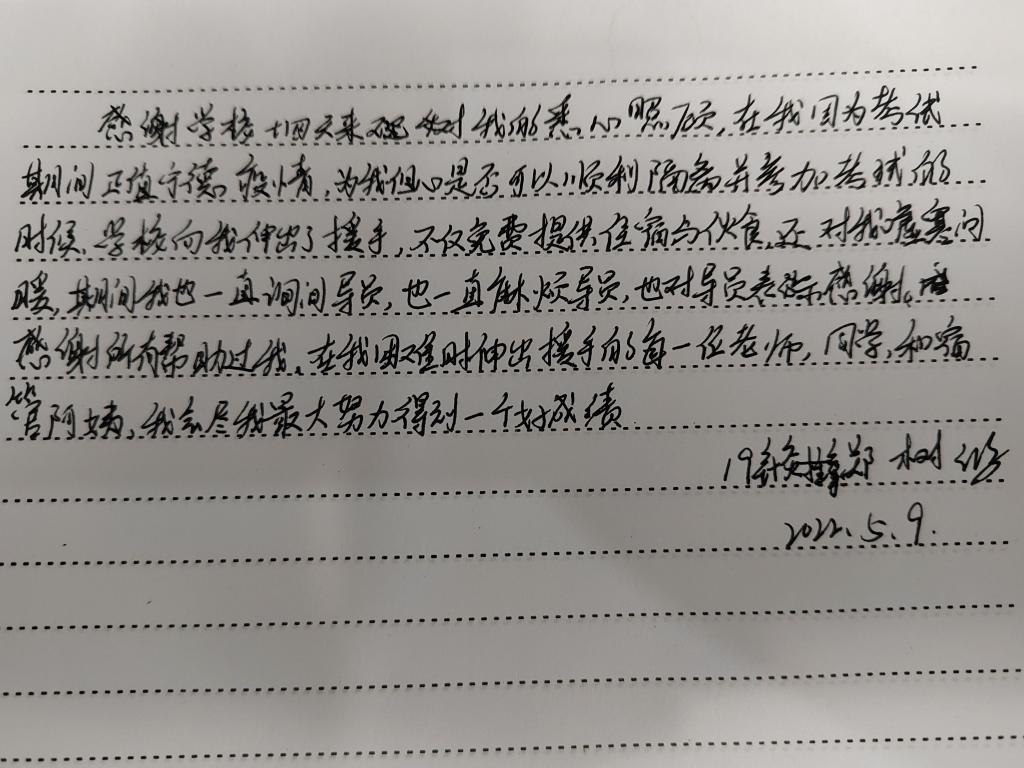 感谢学校十四天来对我的悉心照顾，在我因为考试
期间正值宁德疫情，为我担心是否可以顺利隔离并参加考试的
时候，学校向我伸出了援手，不仅免费提供住宿与伙食，还对我嘘寒问
暖，期间我也一直询问导员，也一直麻烦导员，也对导员表示感谢。
感谢所有帮助过我，在我困难时伸出援手的每一位老师，同学，和宿
管阿姨，我会尽我最大努力得到一个好成绩
19 郑树
2022.5.9.